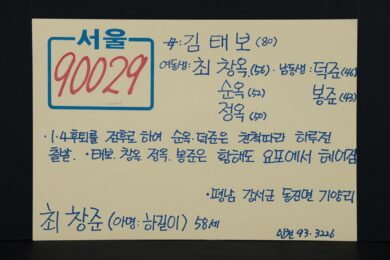 서울
90029
母: 김태보 (80)
여동생: 최창옥 (56) · 남동생: 덕준 (46)
순옥 (52) 봉준 (43)
정옥 (50)
· 1·4후퇴를 전후로 하여 순옥·덕준은 친척따라 하루전
출발. · 태보. 창옥 정옥. 봉준은 황해도 요포에서 헤어짐
· 평남 강서군 동진면 기양리
최창준 (아명: 하길이) 58세
인천 93. 3226